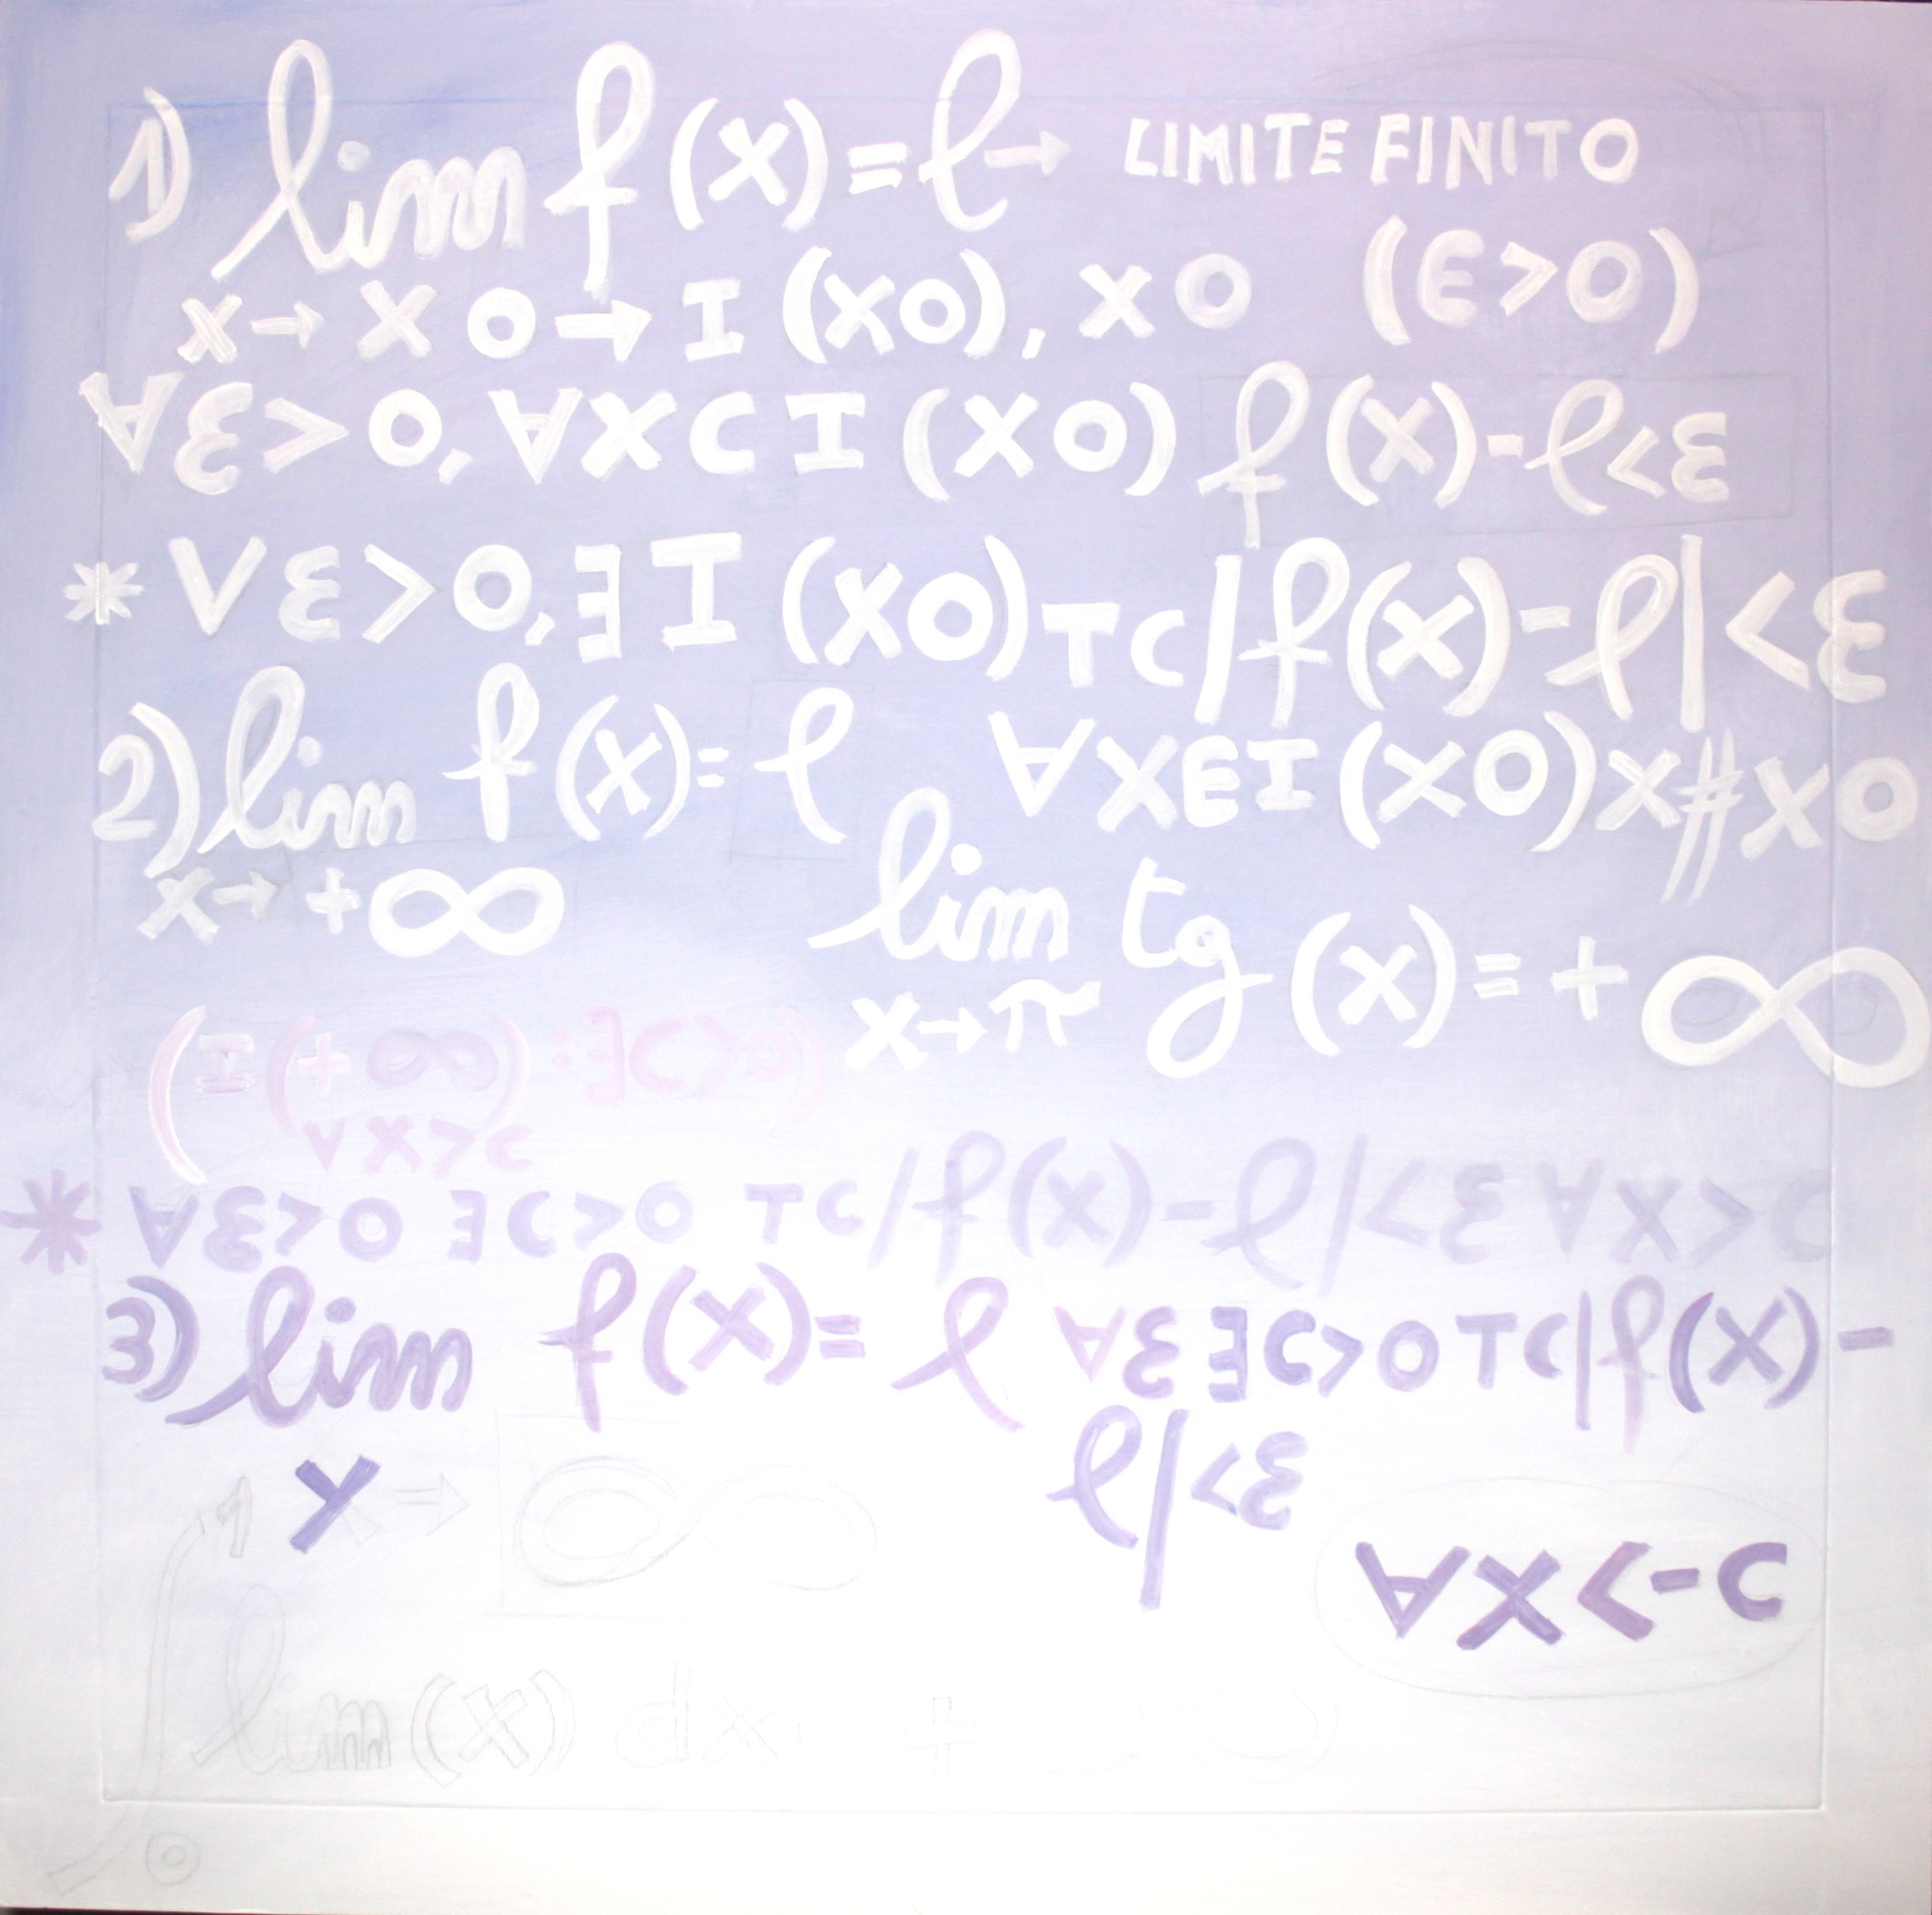 1) lim f(x)=ℓ→ LIMITE FINITO
x→x0→I(x0), x0 (ϵ>0)
∀ε>0, ∀x⊂I(x0) f(x)-ℓ<ε
* Vε>0, ∃I(x0)TC|f(x)-ℓ|<ε
2) lim f(x)=ℓ ∀x∈I(x0)x#x0
x→+∞
lim tg(x)=+∞
x→π
(I(+∞):∃C>0)
∀x>c
* ∀ε>0 ∃C>0 TC/f(x)-ℓ/<ε ∀x>C
3) lim f(x)=ℓ ∀ε ∃C>0TC|f(x)-
ℓ|<ε
x⇒∞
∀x<-C
∫ 1
lim(x) dx +∞
0